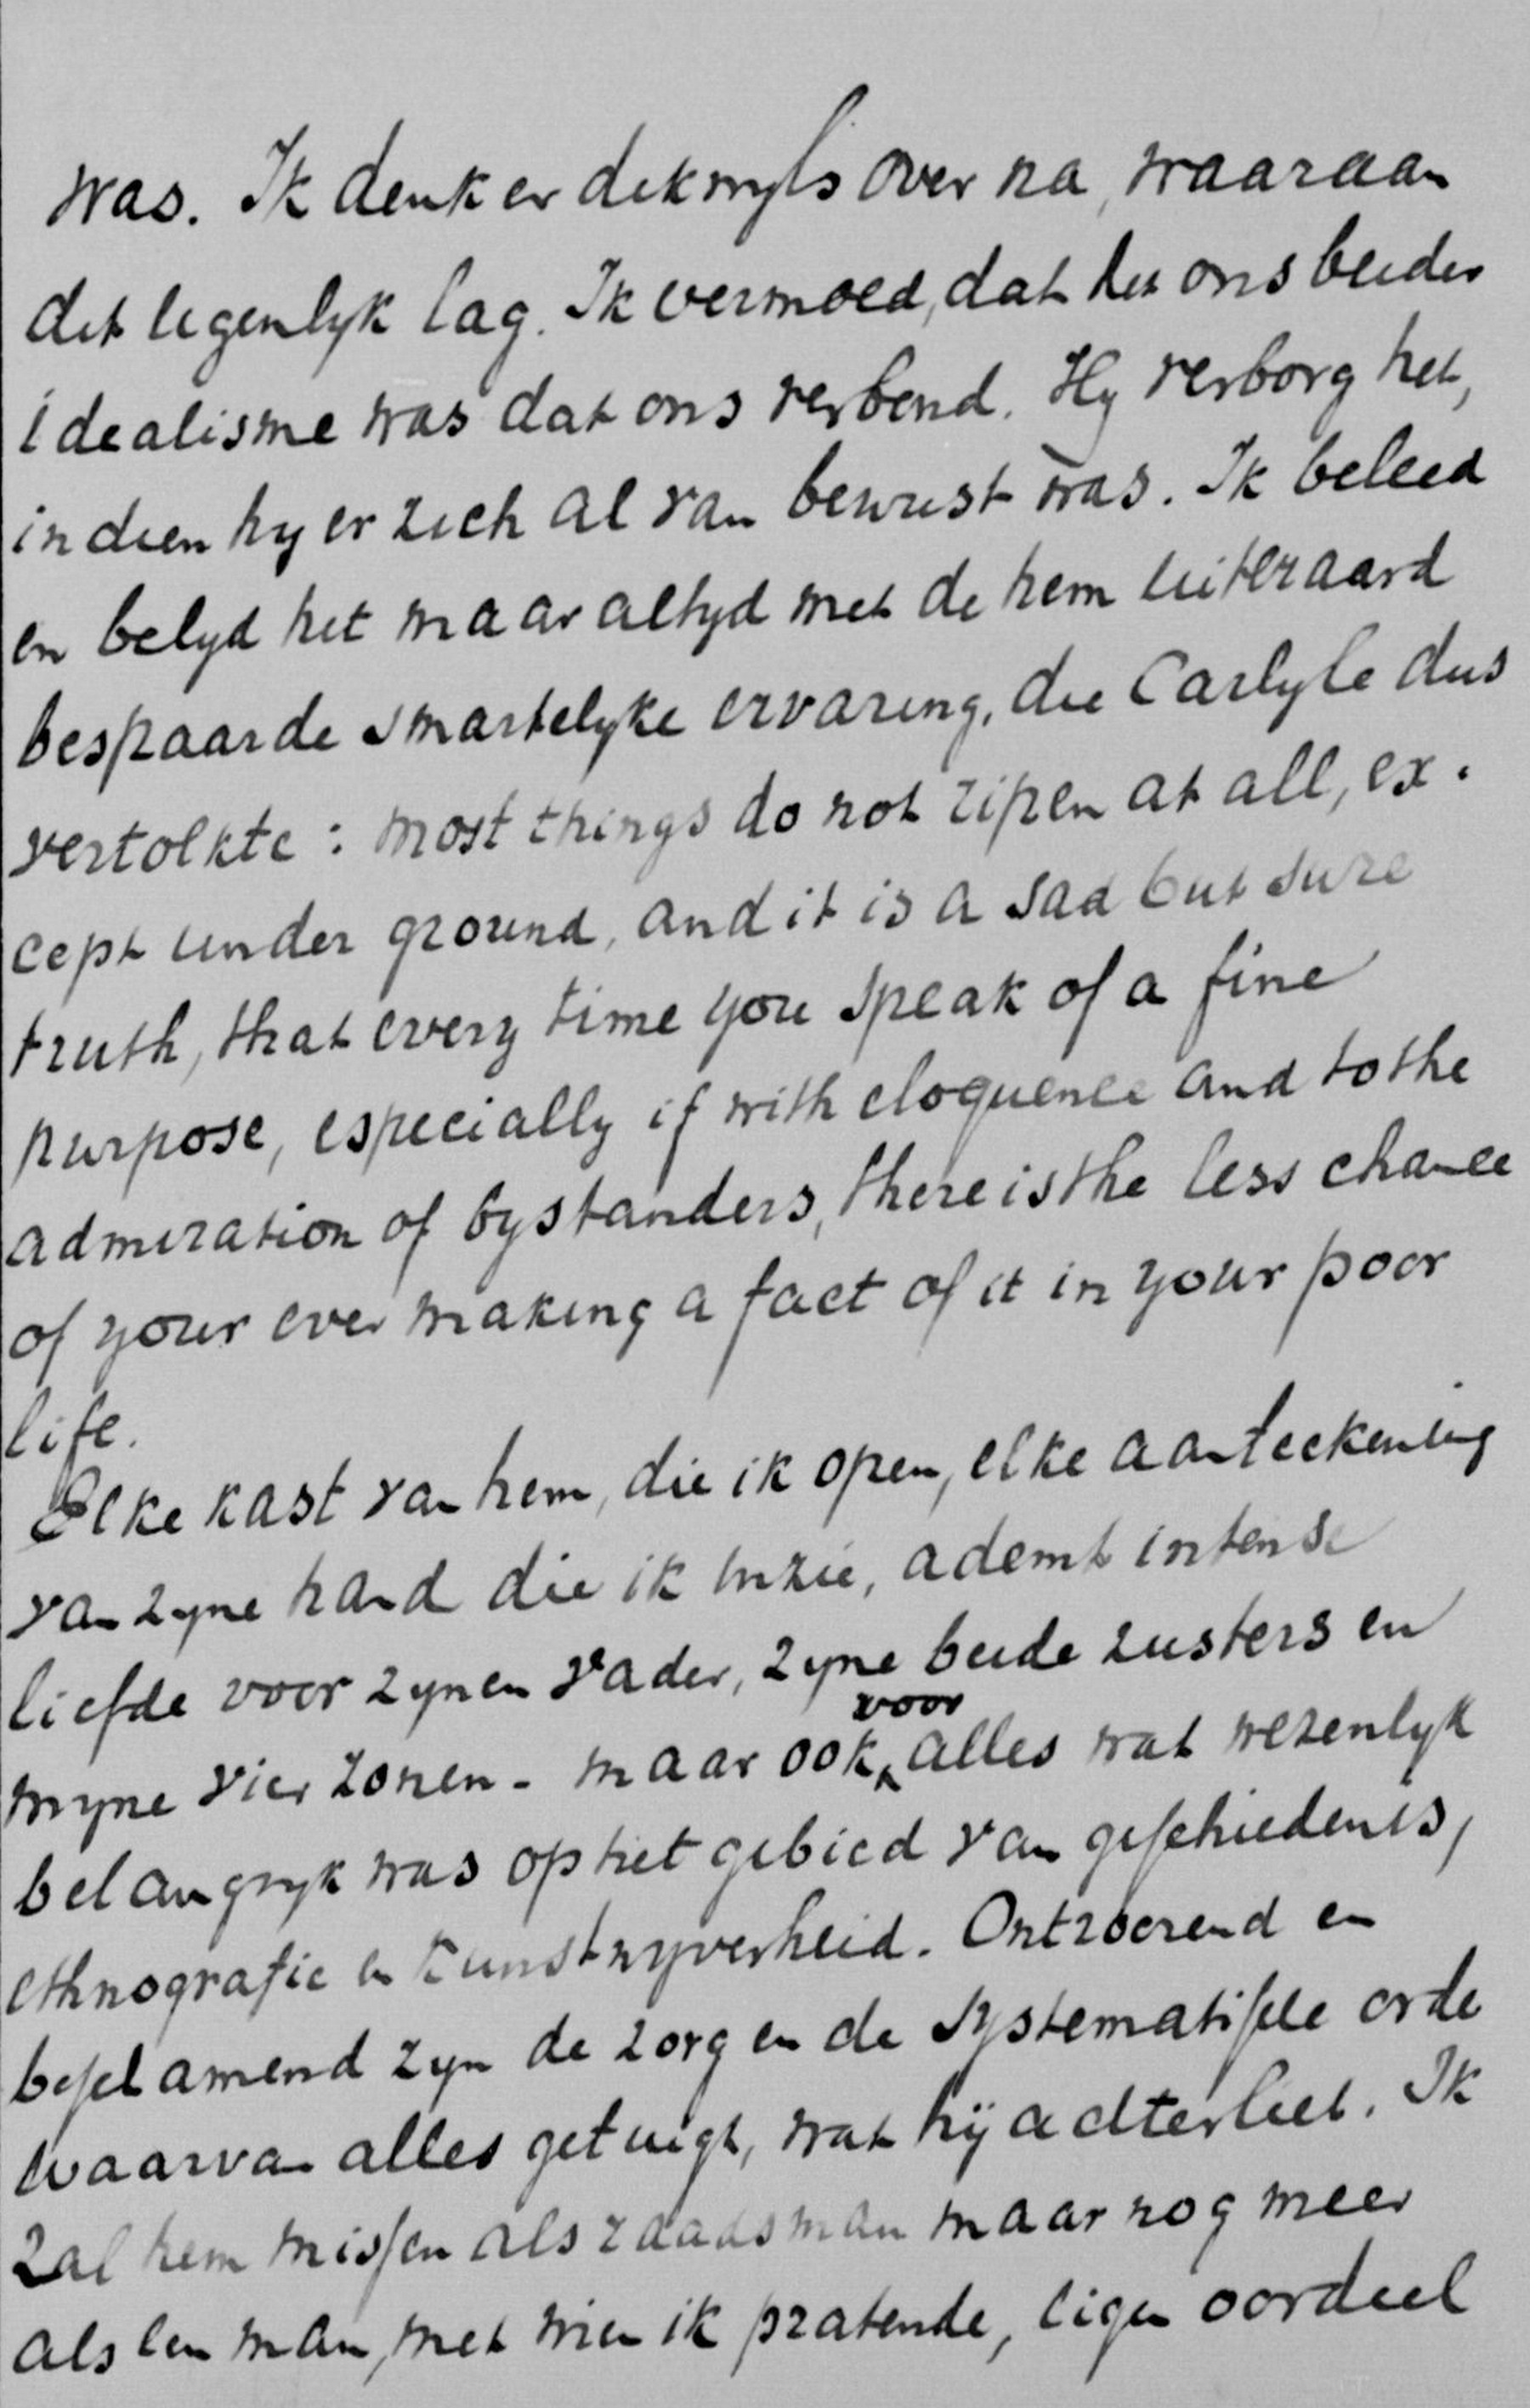 was. Ik denk er dikwyls over na, waaraan
dit eigenlyk lag. Ik vermoed, dat het ons beider
idealisme was dat ons verbond. Hy verborg het,
indien hy er zich al van bewust was. Ik beleed
en belyd het maar altyd met de hem uiteraard
bespaarde smartelyke ervaring, die Carlyle dus
vertolkte: most things do not ripen at all, ex-
cept under ground, and it is a sad but sure
truth, that every time you speak of a fine
purpose, especially if with eloquence and to the
admiration of bystanders, there is the less chance
of your ever making a fact of it in your poor
life.
Elke kast van hem, die ik open, elke aanteekening
van zyne hand die ik inzie, ademt intense
liefde voor zynen vader, zyne beide zusters en
myne vier zonen - maar ook voor alles wat wezenlyk
belangryk was op het gebied van geschiedenis,
ethnografie en kunstnyverheid. Ontroerend en
beschamend zyn de zorg en de systematische orde
waarvan alles getuigt, wat hij achterliet. Ik
zal hem missen als raadsman maar nog meer
als een man, met wien ik pratende, eigen oordeel